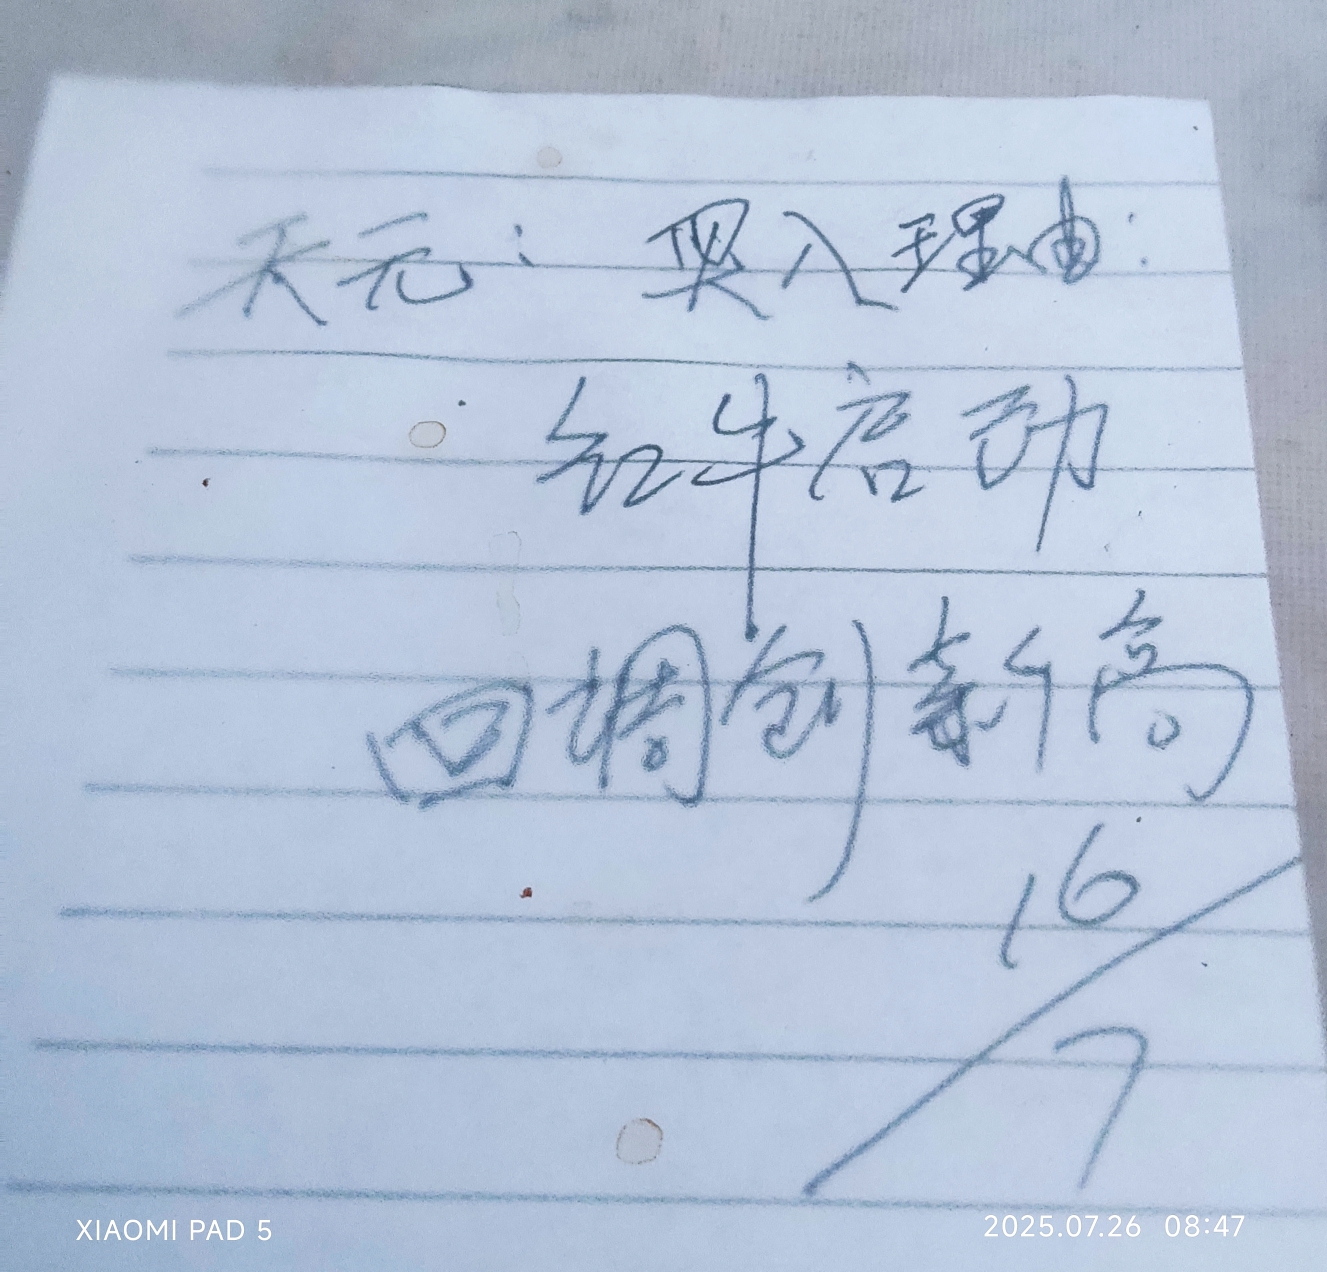 天元: 买入理由:
红牛启动
回调创新高
16/7
XIAOMI PAD 5
2025.07.26 08:47